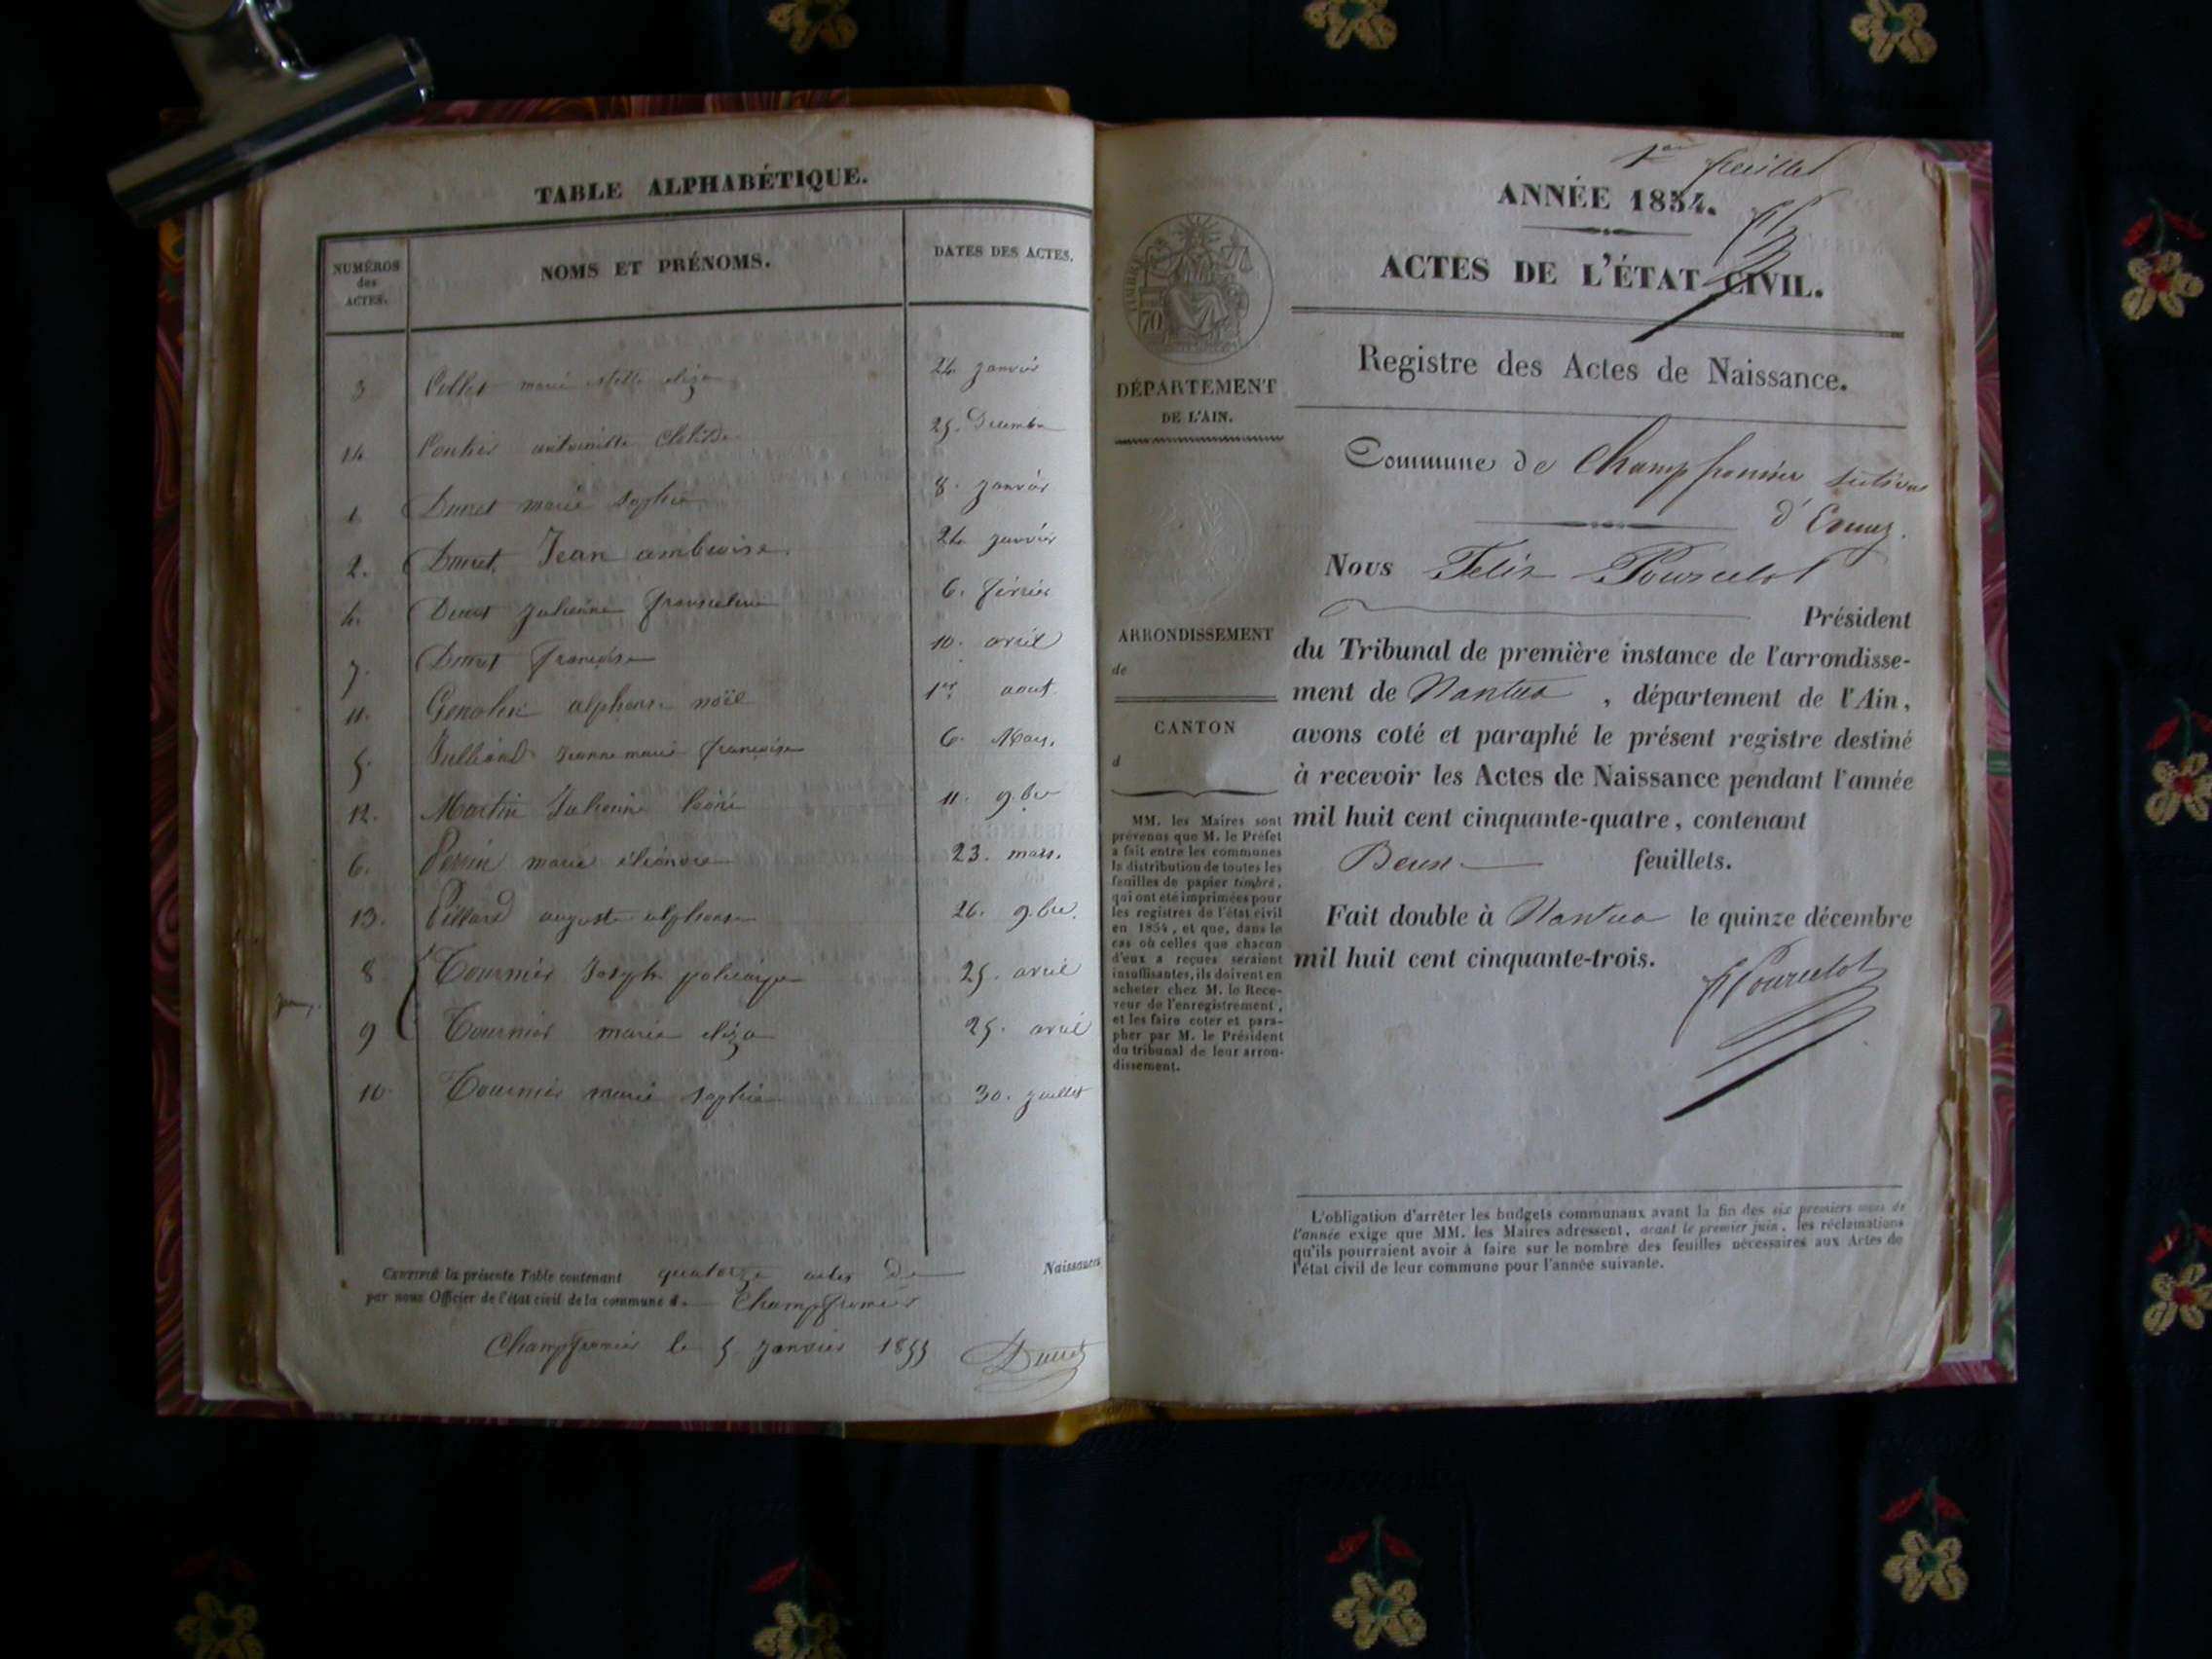 TABLE ALPHABÉTIQUE.
NUMÉROS
des
ACTES.
NOMS ET PRÉNOMS.
DATES DES ACTES.
3 Collet marie eliza 24 janvier
14 antoinette Clotilde 25. Decembre
1 Ducret marie Sophie 8. janvier
2. Ducret Jean ambroise 24 janvier
4. Ducret julienne 6. février
7. Ducret françoise 10. avril
11. alphonse noël 1er aout
5. Julliand jeanne marie françoise 6. Mars.
12. Martin 11. 9.bre
6. Perrin marie éléonore 23. mars.
13. auguste alphonse 26. 9.bre
8 Tournier Joseph policarpe 25. avril
9 Tournier marie eliza 25. avril
10 Tournier marie sophie 30. juillet
CERTIFIÉ la présente Table contenant quatorze actes de Naissances
par nous Officier de l'état civil de la commune de Champfromier
Champfromier le 5 janvier 1855 Ducret
1er feuillet
ANNÉE 1854.
ACTES DE L'ÉTAT CIVIL.
Registre des Actes de Naissance.
TIMBRE
70
DÉPARTEMENT
DE L'AIN.
ARRONDISSEMENT
de
CANTON
d
MM. les Maires sont
prévenus que M. le Préfet
a fait entre les communes
la distribution de toutes les
feuilles de papier timbré,
qui ont été imprimées pour
les registres de l'état civil
en 1854, et que, dans le
cas où celles que chacun
d'eux a reçues seraient
insuffisantes, ils doivent en
acheter chez M. le Rece-
veur de l'enregistrement,
et les faire coter et para-
pher par M. le Président
du tribunal de leur arron-
dissement.
Commune de Champfromier section
d'
Nous Felix Pourcelot
Président
du Tribunal de première instance de l'arrondisse-
ment de Nantua , département de l'Ain,
avons coté et paraphé le présent registre destiné
à recevoir les Actes de Naissance pendant l'année
mil huit cent cinquante-quatre, contenant
feuillets.
Fait double à Nantua le quinze décembre
mil huit cent cinquante-trois.
Pourcelot
L'obligation d'arrêter les budgets communaux avant la fin des six premiers mois de
l'année exige que MM. les Maires adressent, avant le premier juin, les réclamations
qu'ils pourraient avoir à faire sur le nombre des feuilles nécessaires aux Actes de
l'état civil de leur commune pour l'année suivante.